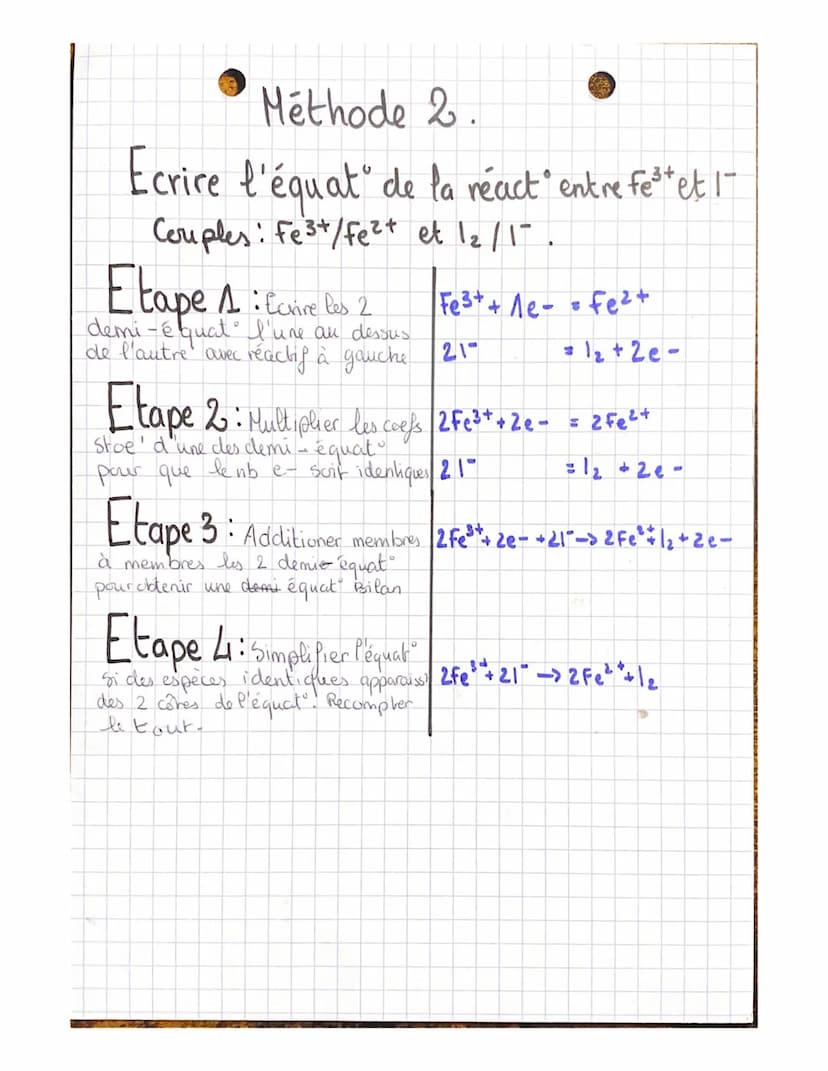 Méthode 2.
Ecrire l'équat° de la réact° entre Fe³⁺ et I⁻
Couples : Fe³⁺/Fe²⁺ et I₂/I⁻.
Etape 1 : Ecrire les 2
demi-équat° l'une au dessus
de l'autre avec réactif à gauche
Fe³⁺ + 1e- = Fe²⁺
2I⁻ = I₂ + 2e-
Etape 2 : Multiplier les coefs
stoe' d'une des demi-équat°
pour que le nb e- soit identiques
2Fe³⁺ + 2e- = 2Fe²⁺
2I⁻ = I₂ + 2e-
Etape 3 : Additioner membres
à membres les 2 demie équat°
pour obtenir une demi équat° Bilan
2Fe³⁺ + 2e- + 2I⁻ -> 2Fe²⁺ + I₂ + 2e-
Etape 4 : Simplifier l'équat°
Si des espèces identiques apparaiss
des 2 côtés de l'équat°. Recompter
le tout.
2Fe³⁺ + 2I⁻ -> 2Fe²⁺ + I₂